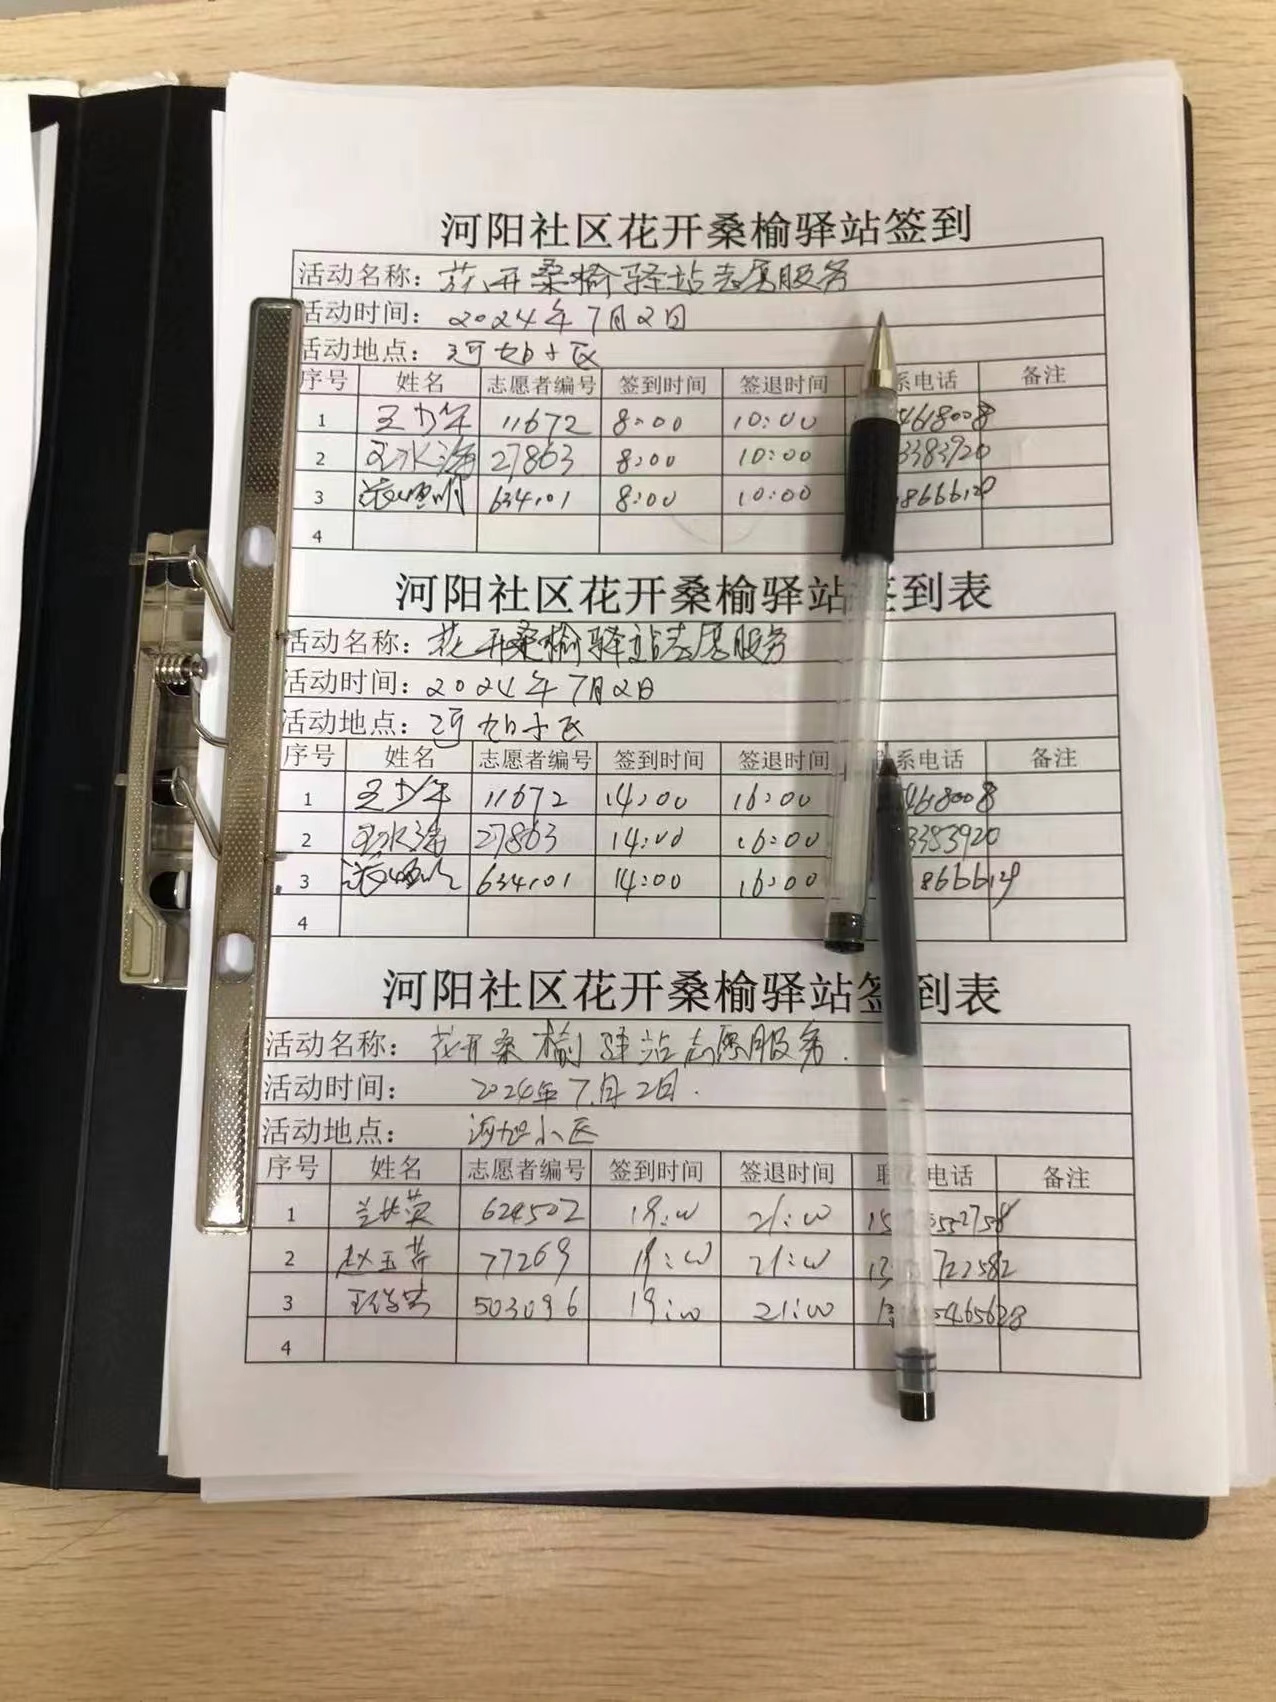 河阳社区花开桑榆驿站签到
活动名称：花开桑榆驿站志愿服务
活动时间：2024年7月2日
活动地点：河旭小区
序号 姓名 志愿者编号 签到时间 签退时间 系电话 备注
1 王少年 11672 8:00 10:00 4618008
2 王水海 27863 8:00 10:00 3383920
3 634101 8:00 10:00 8666129
4
河阳社区花开桑榆驿站签到表
活动名称：花开桑榆驿站志愿服务
活动时间：2024年7月2日
活动地点：河旭小区
序号 姓名 志愿者编号 签到时间 签退时间 系电话 备注
1 王少年 11672 14:00 16:00 4618008
2 王水海 27863 14:00 16:00 3383920
3 634101 14:00 16:00 8666129
4
河阳社区花开桑榆驿站签到表
活动名称：花开桑榆驿站志愿服务.
活动时间：2024年7月2日.
活动地点：河旭小区
序号 姓名 志愿者编号 签到时间 签退时间 联 电话 备注
1 兰长英 624502 19:00 21:00 15 552758
2 赵玉芹 77269 19:00 21:00 13 722582
3 503096 19:00 21:00 5465628
4